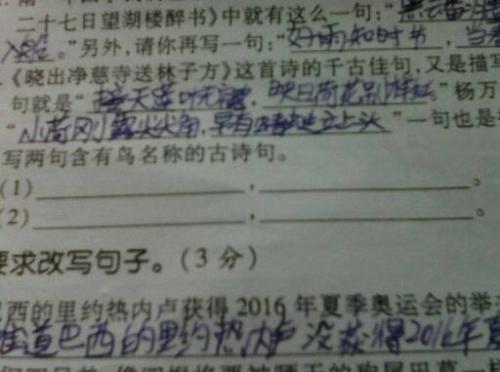 二十七日望湖楼醉书》中就有这么一句:"黑云翻
入船。"另外,请你再写一句:"好雨知时节,当春
《晓出净慈寺送林子方》这首诗的千古佳句,又是描写
句就是"接天莲叶无穷,映日荷花别样红"杨万
"小荷刚露尖尖角,早有蜻蜓立上头"一句也是
写两句含有鸟名称的古诗句。
(1)____,____。
(2)____,____。
要求改写句子。(3分)
巴西的里约热内卢获得2016年夏季奥运会的举
谁道巴西的里约热内卢没获得2016年夏